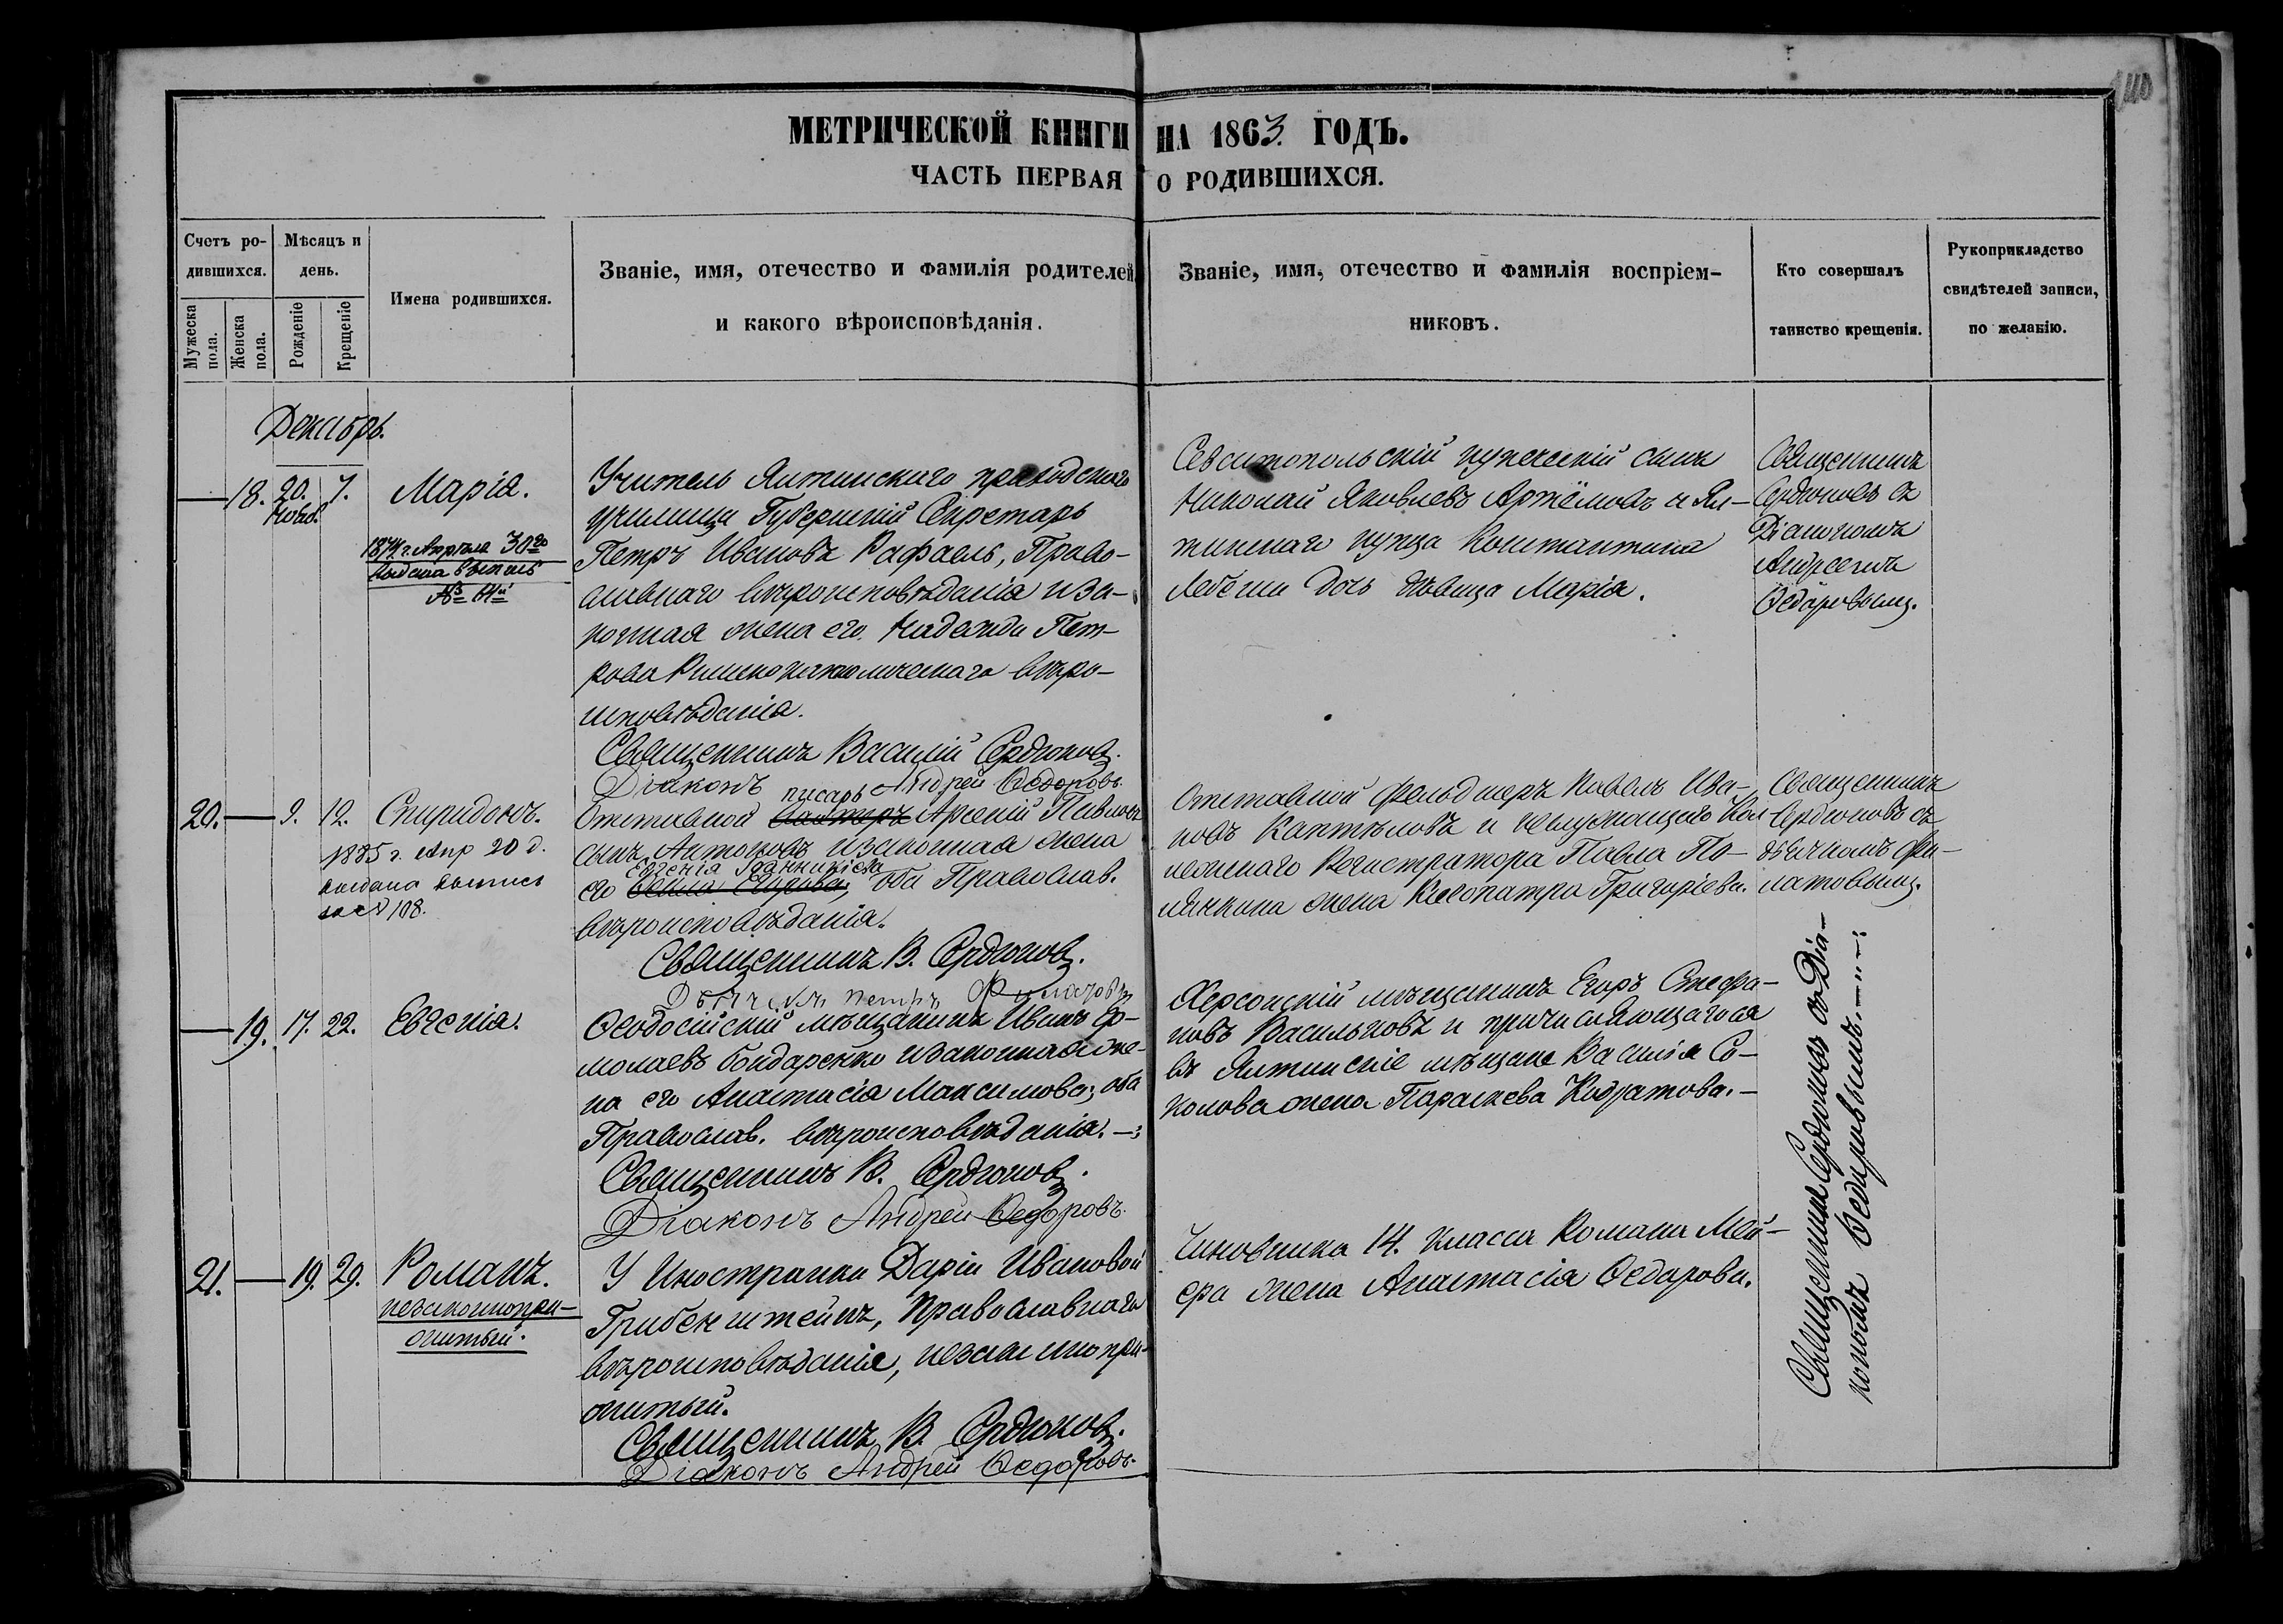 140
МЕТРИЧЕСКОЙ КНИГИ НА 1863. ГОДЪ.
ЧАСТЬ ПЕРВАЯ О РОДИВШИХСЯ.
Счетъ ро-
дившихся.
Мужеска пола.
Женска пола.
Мѣсяцъ и
день.
Рожденіе
Крещеніе
Имена родившихся.
Званіе, имя, отечество и фамилія родителей,
и какого вѣроисповѣданія.
Званіе, имя, отечество и фамилія воспріем-
никовъ.
Кто совершалъ
таинство крещенія.
Рукоприкладство
свидѣтелей записи,
по желанію.
Декабрь.
18. 20. Нояб. 7. Марія.
Апрѣля 30го
выдана выпись
Учитель Ялтинскаго приходскаго
училища Губернскій Секретарь
Петръ Ивановъ Рафаель, Право-
славнаго вѣроисповѣданія и за-
конная жена его Надежда Пет-
рова Римско католическаго вѣро-
исповѣданія.
Священникъ Василій Сердюковъ.
Діаконъ Андрей Ѳедоровъ.
Севастопольскій купеческій сынъ
Николай Яковлевъ Артёмовъ и Ял-
тинскаго купца Константина
дочь дѣвица Марія.
Священникъ
Сердюковъ съ
Діакономъ
Андреемъ
Ѳедоровымъ.
20. 9. 12. Спиридонъ.
1885 г. Апр 20 д.
выдана выпись
за № 108.
писарь
Отставной Арсеній Павловъ
сынъ Антоновъ и законная жена
Евгенія
его Оба Православ.
вѣроисповѣданія.
Священникъ В. Сердюковъ.
Дьячекъ Петръ Филатовъ
Отставной фельдшеръ Павелъ Ива-
новъ Каптѣловъ и служащаго Кол-
лежскаго Регистратора Павла По-
жена Клеопатра Григоріева.
Священникъ
Сердюковъ съ
дьячкомъ Фи-
латовымъ.
19. 17. 22. Евгенія.
Ѳеодосійскій мѣщанинъ Иванъ Ер-
молаевъ Бондаренко и законная же-
на его Анастасія Максимова; оба
Православ. вѣроисповѣданія.
Священникъ В. Сердюковъ.
Діаконъ Андрей Ѳедоровъ.
Херсонскій мѣщанинъ Егоръ Стефа-
новъ Васильковъ и причисляющагося
въ Ялтинскіе мѣщане Василія Со-
колова жена Параскева Кодратова.
21. 19. 29. Романъ.
незаконнопри-
житый.
У Иностранки Даріи Ивановой
Грибенштейнъ, Православнаго
вѣроисповѣданія, незаконнопри-
житый.
Священникъ В. Сердюковъ.
Діаконъ Андрей Ѳедоровъ.
Чиновника 14. класса Романа Мей-
ера жена Анастасія Ѳедорова.
Священникъ Сердюковъ съ Діа-
кономъ Ѳедоровымъ.